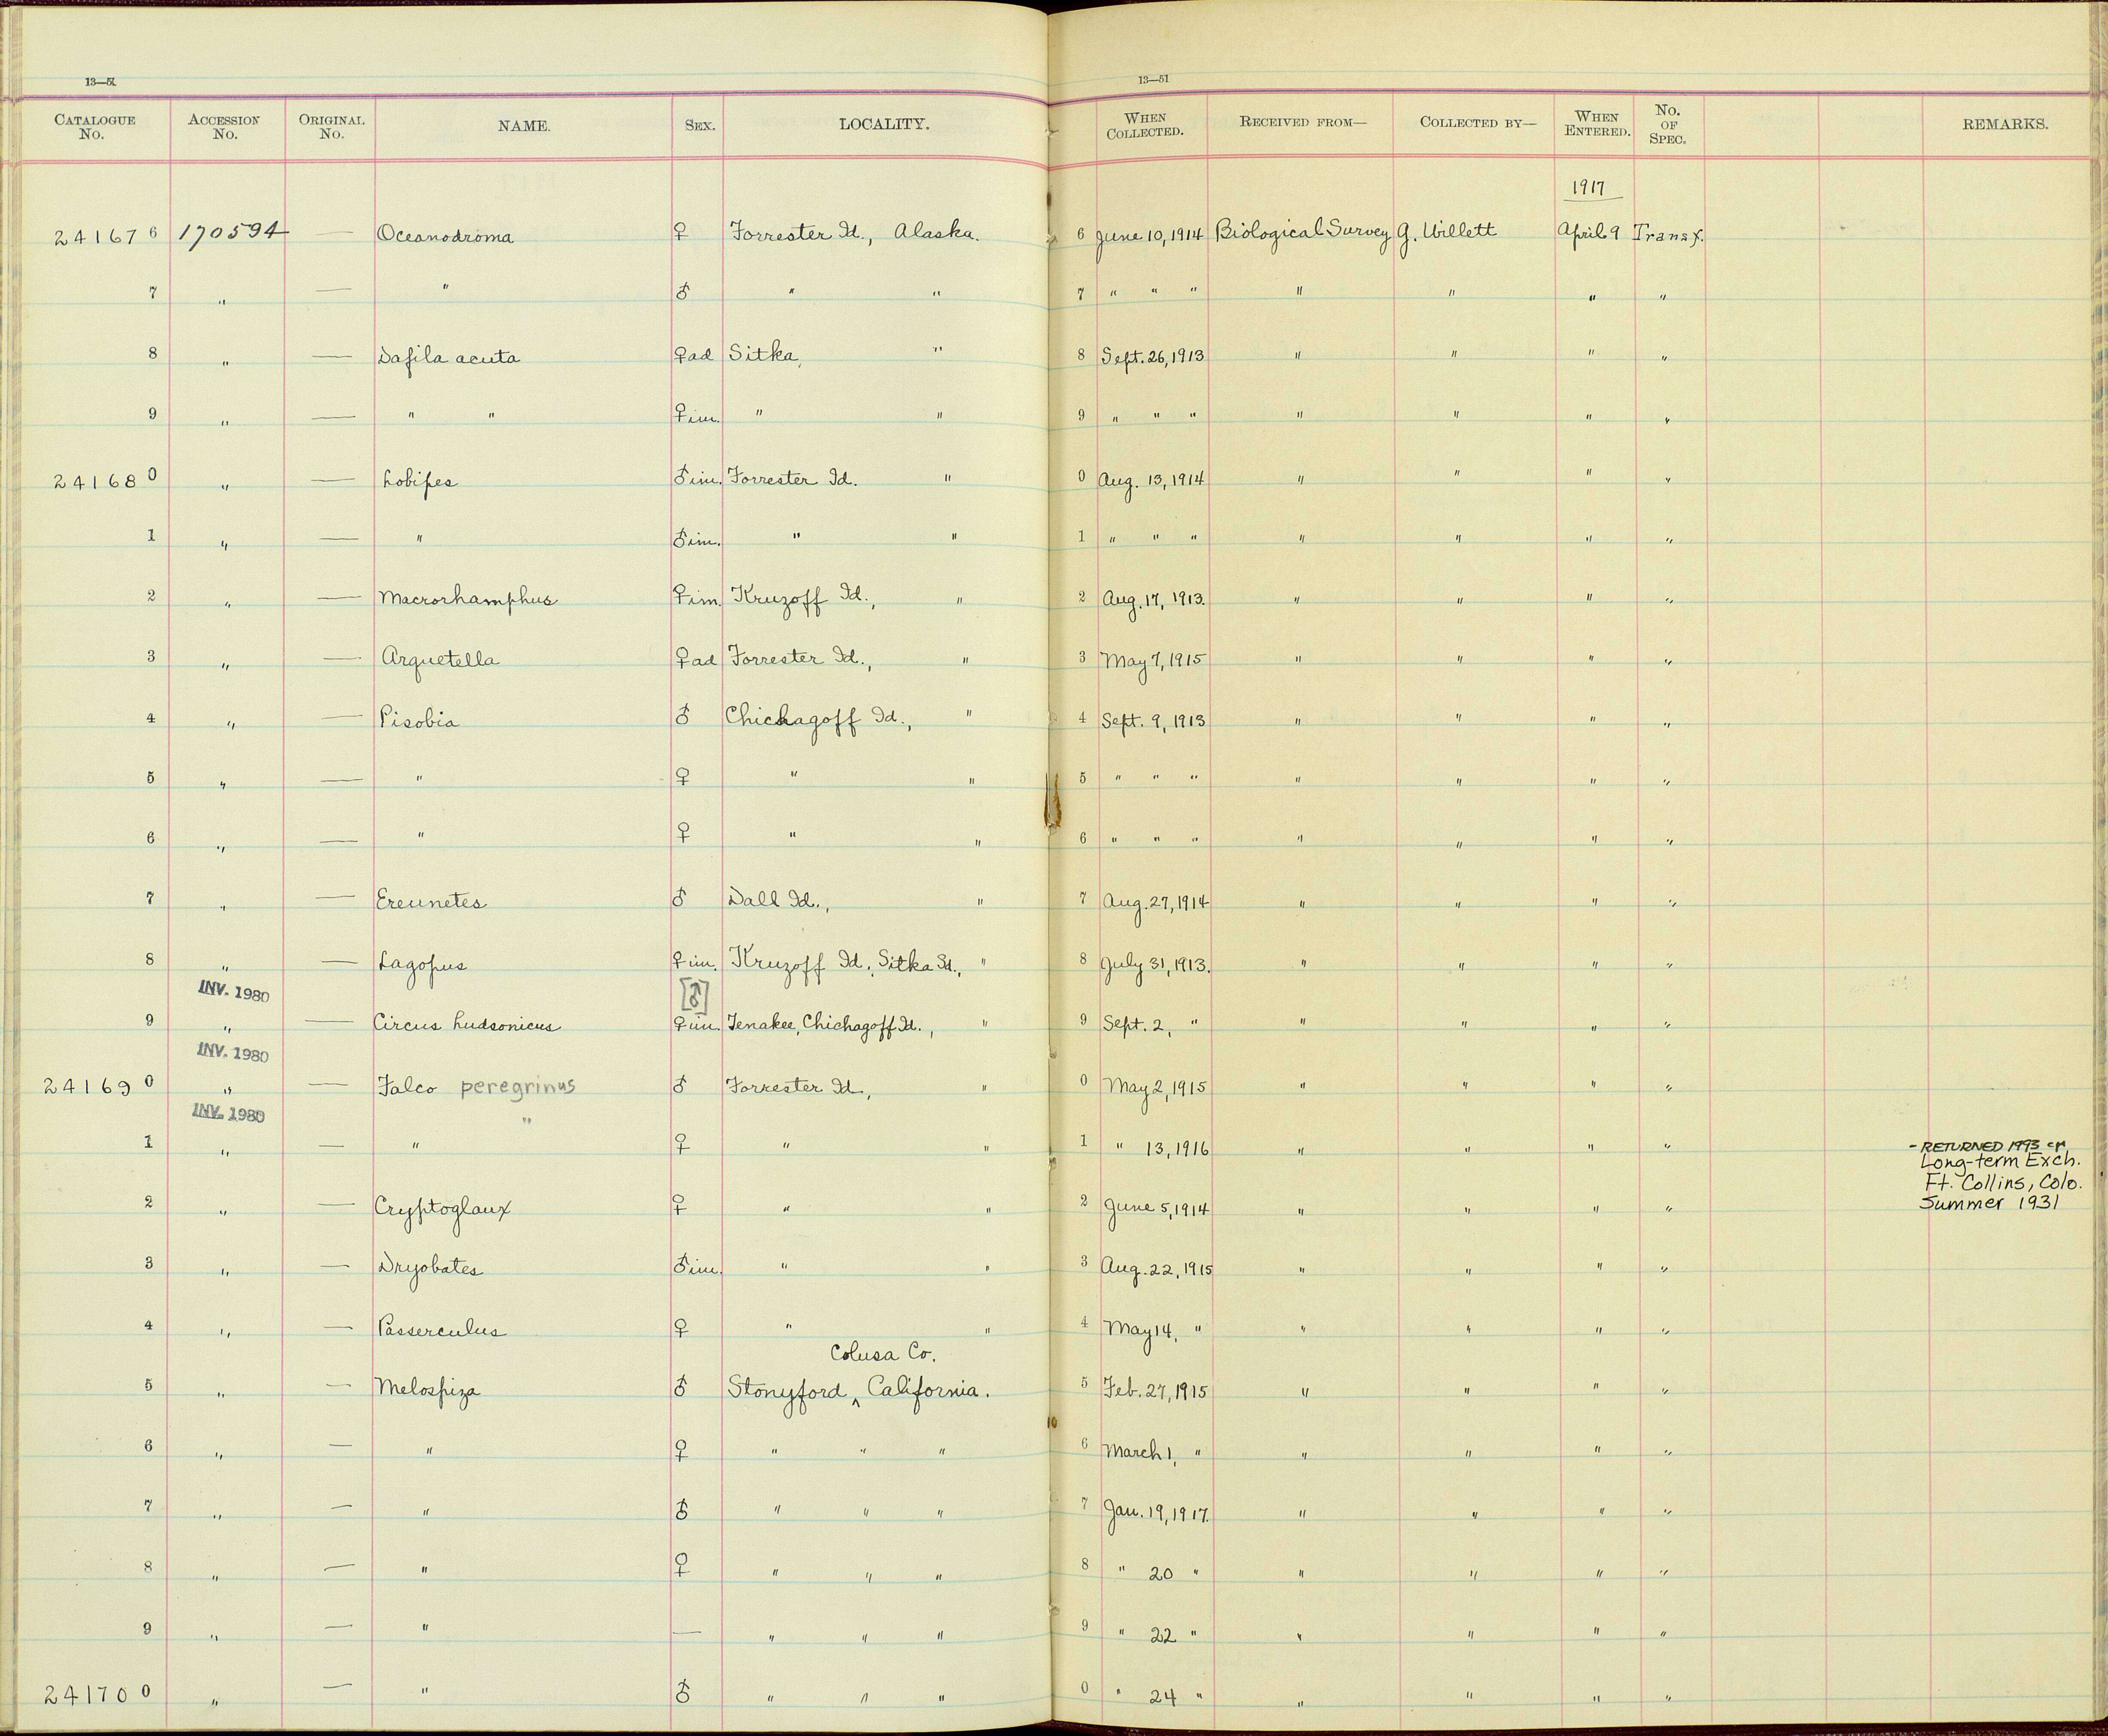 13—51
13—51
CATALOGUE No. ACCESSION No. ORIGINAL No. NAME. SEX. LOCALITY. WHEN COLLECTED. RECEIVED FROM— COLLECTED BY— WHEN ENTERED. No. OF SPEC. REMARKS.
1917
241676 170594 — Oceanodroma ♀ Forrester Id., Alaska. 6 June 10, 1914 Biological Survey G. Willett April 9 Transf.
7 " — " ♂ " " 7 " " " " " " "
8 " — Dafila acuta ♀ad Sitka, " 8 Sept. 26, 1913 " " " "
9 " — " " ♀im. " " 9 " " " " " " "
241680 " — Lobipes ♂im. Forrester Id. " 0 Aug. 13, 1914 " " " "
1 " — " ♂im. " " 1 " " " " " " "
2 " — Macrorhamphus ♀im. Kruzoff Id., " 2 Aug. 17, 1913. " " " "
3 " — Arquetella ♀ad Forrester Id., " 3 May 7, 1915 " " " "
4 " — Pisobia ♂ Chichagoff Id., " 4 Sept. 9, 1913 " " " "
5 " — " ♀ " " 5 " " " " " " "
6 " — " ♀ " " 6 " " " " " " "
7 " — Ereunetes ♂ Dall Id., " 7 Aug. 27, 1914 " " " "
8 " — Lagopus ♀im. Kruzoff Id., Sitka Sd., " 8 July 31, 1913. " " " "
INV. 1980 [♂]
9 " — Circus hudsonicus ♀im. Tenakee, Chichagoff Id., " 9 Sept. 2, " " " " "
INV. 1980
241690 " — Falco peregrinus ♂ Forrester Id., " 0 May 2, 1915 " " " "
INV. 1980 "
1 " — " ♀ " " 1 " 13, 1916 " " " "
- RETURNED 1993 cr
Long-term Exch.
Ft. Collins, Colo.
Summer 1931
2 " — Cryptoglaux ♀ " " 2 June 5, 1914 " " " "
3 " — Dryobates ♂im. " " 3 Aug. 22, 1915 " " " "
4 " — Passerculus ♀ " " 4 May 14, " " " " "
Colusa Co.
5 " — Melospiza ♂ Stonyford ‸ California. 5 Feb. 27, 1915 " " " "
6 " — " ♀ " " " 6 March 1, " " " " "
7 " — " ♂ " " " 7 Jan. 19, 1917. " " " "
8 " — " ♀ " " " 8 " 20 " " " " "
9 " — " — " " " 9 " 22 " " " " "
241700 " — " ♂ " " " 0 " 24 " " " " "